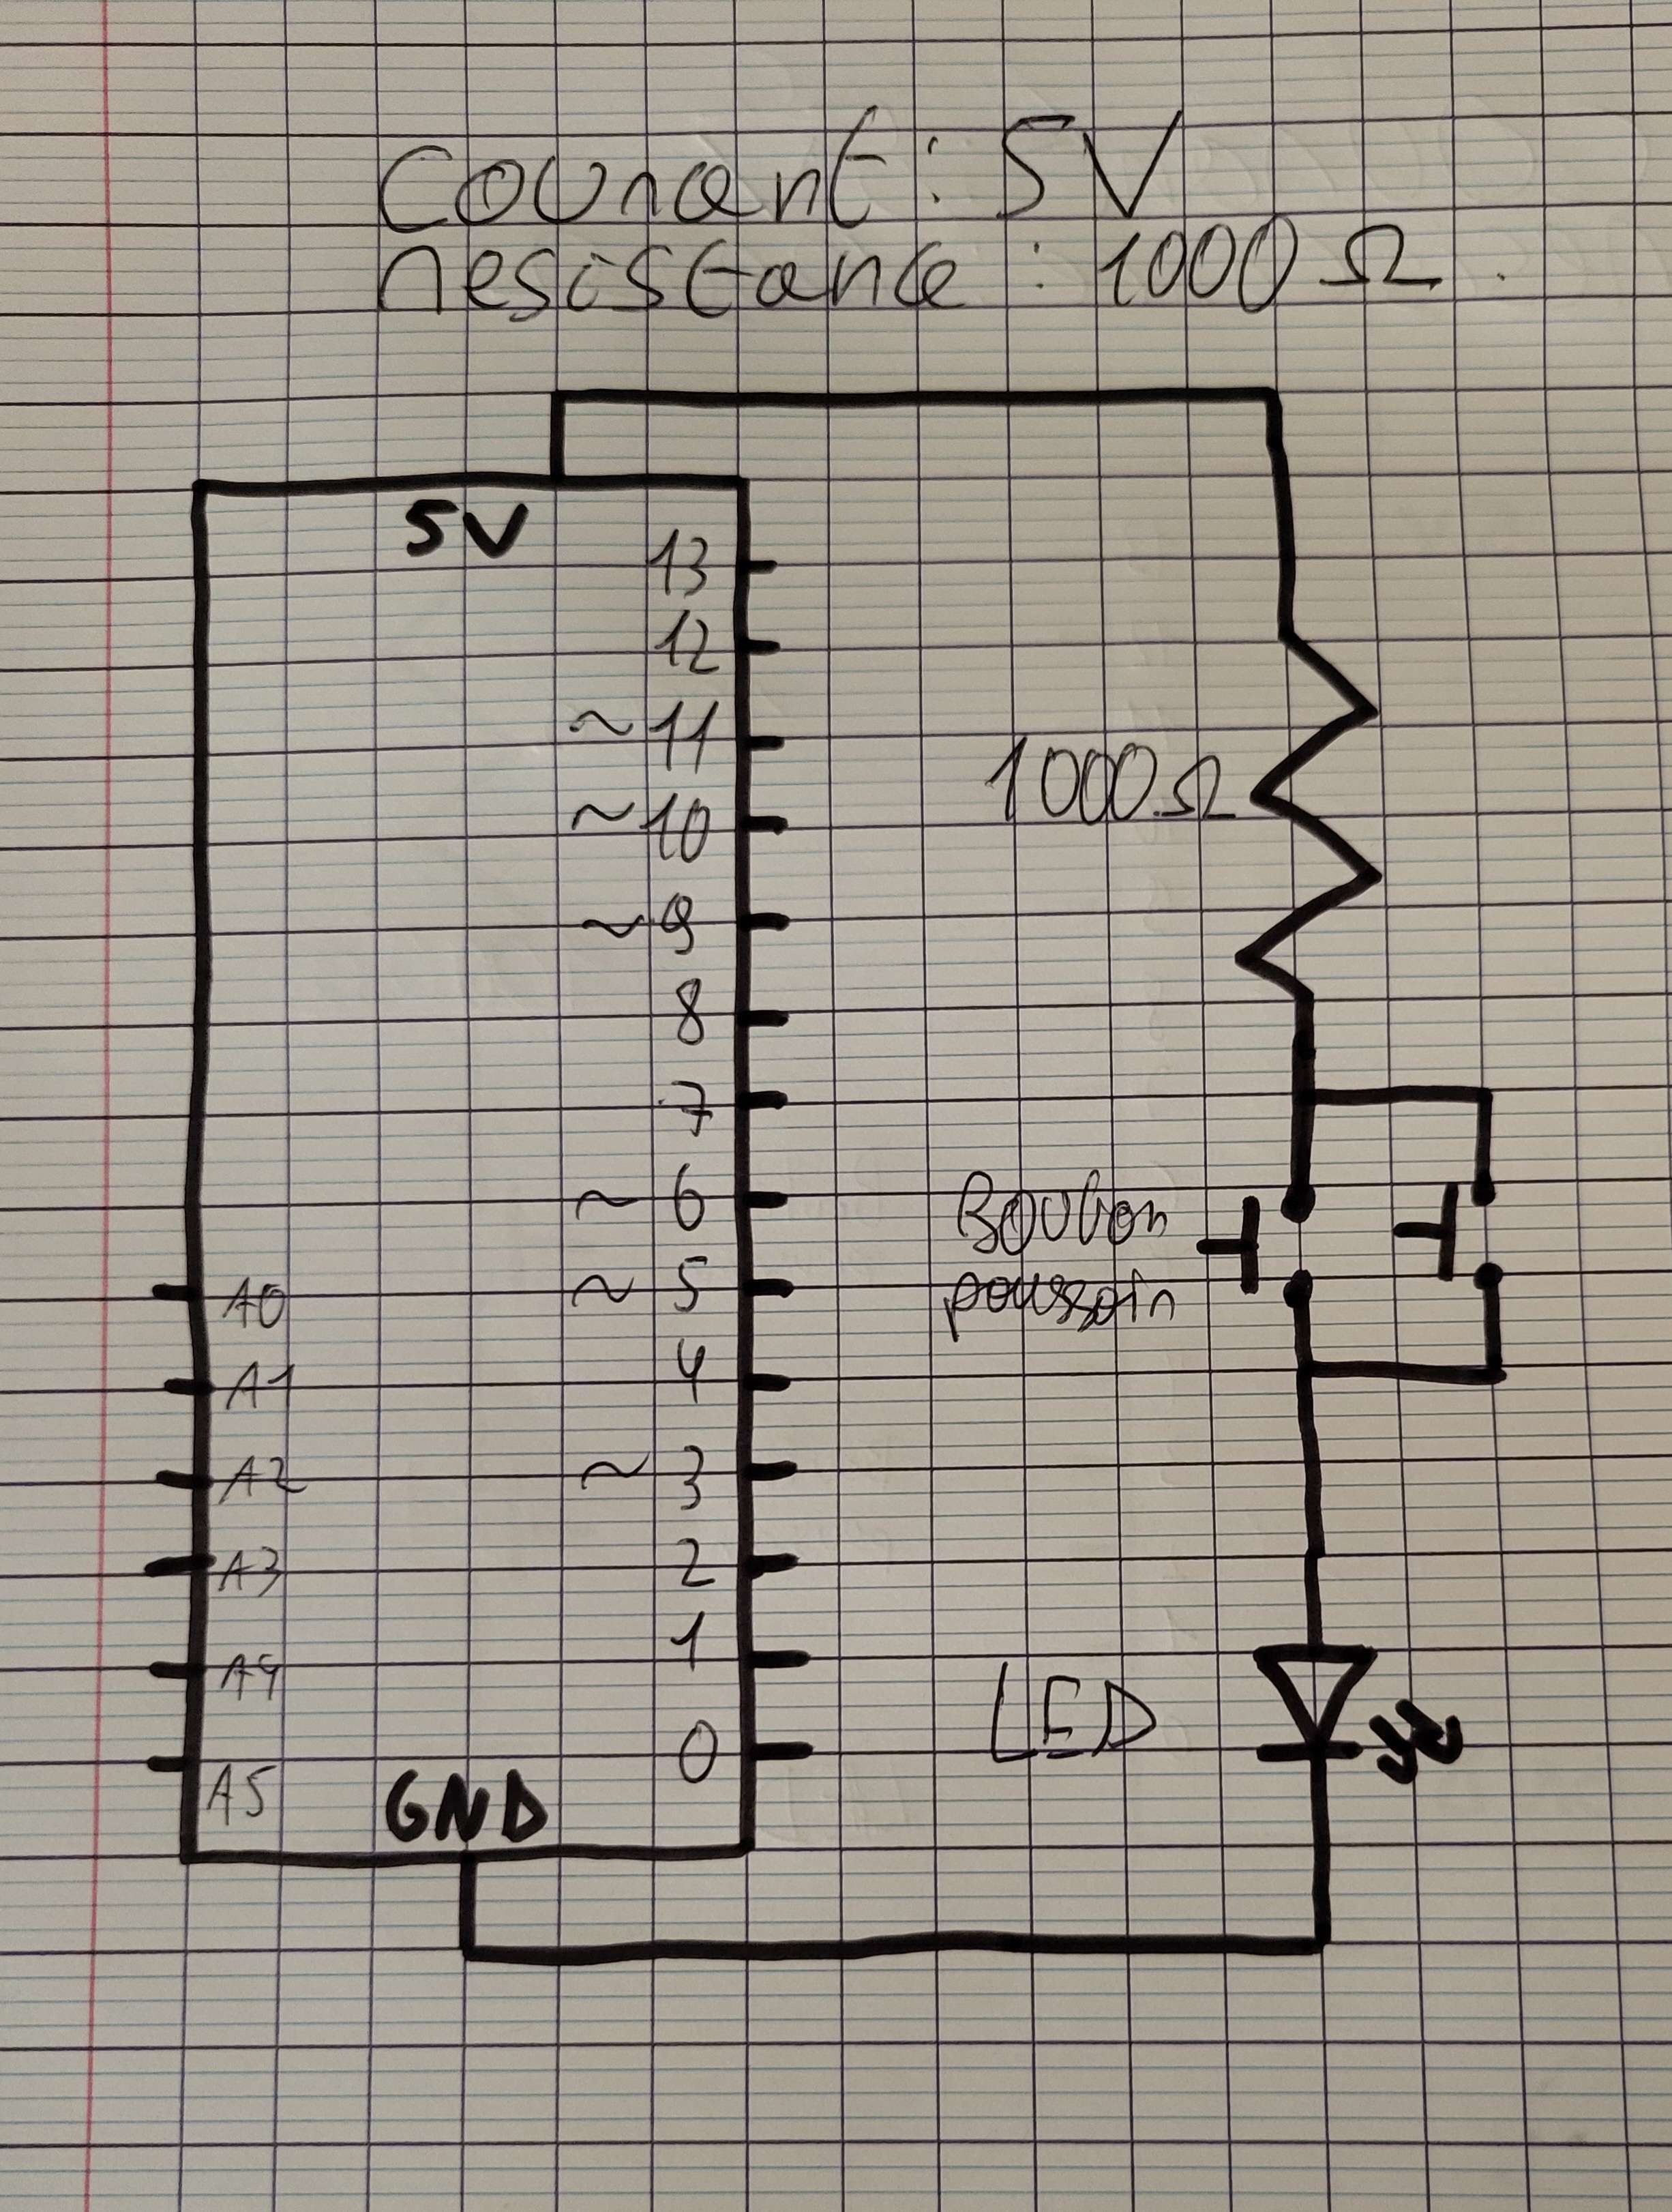 Courant : 5V
resistance : 1000 Ω.
5V
13
12
~ 11
~ 10
~ 9
8
7
~ 6
~ 5
4
~ 3
2
1
0
A0
A1
A2
A3
A4
A5
GND
1000Ω
Bouton
poussoin
LED